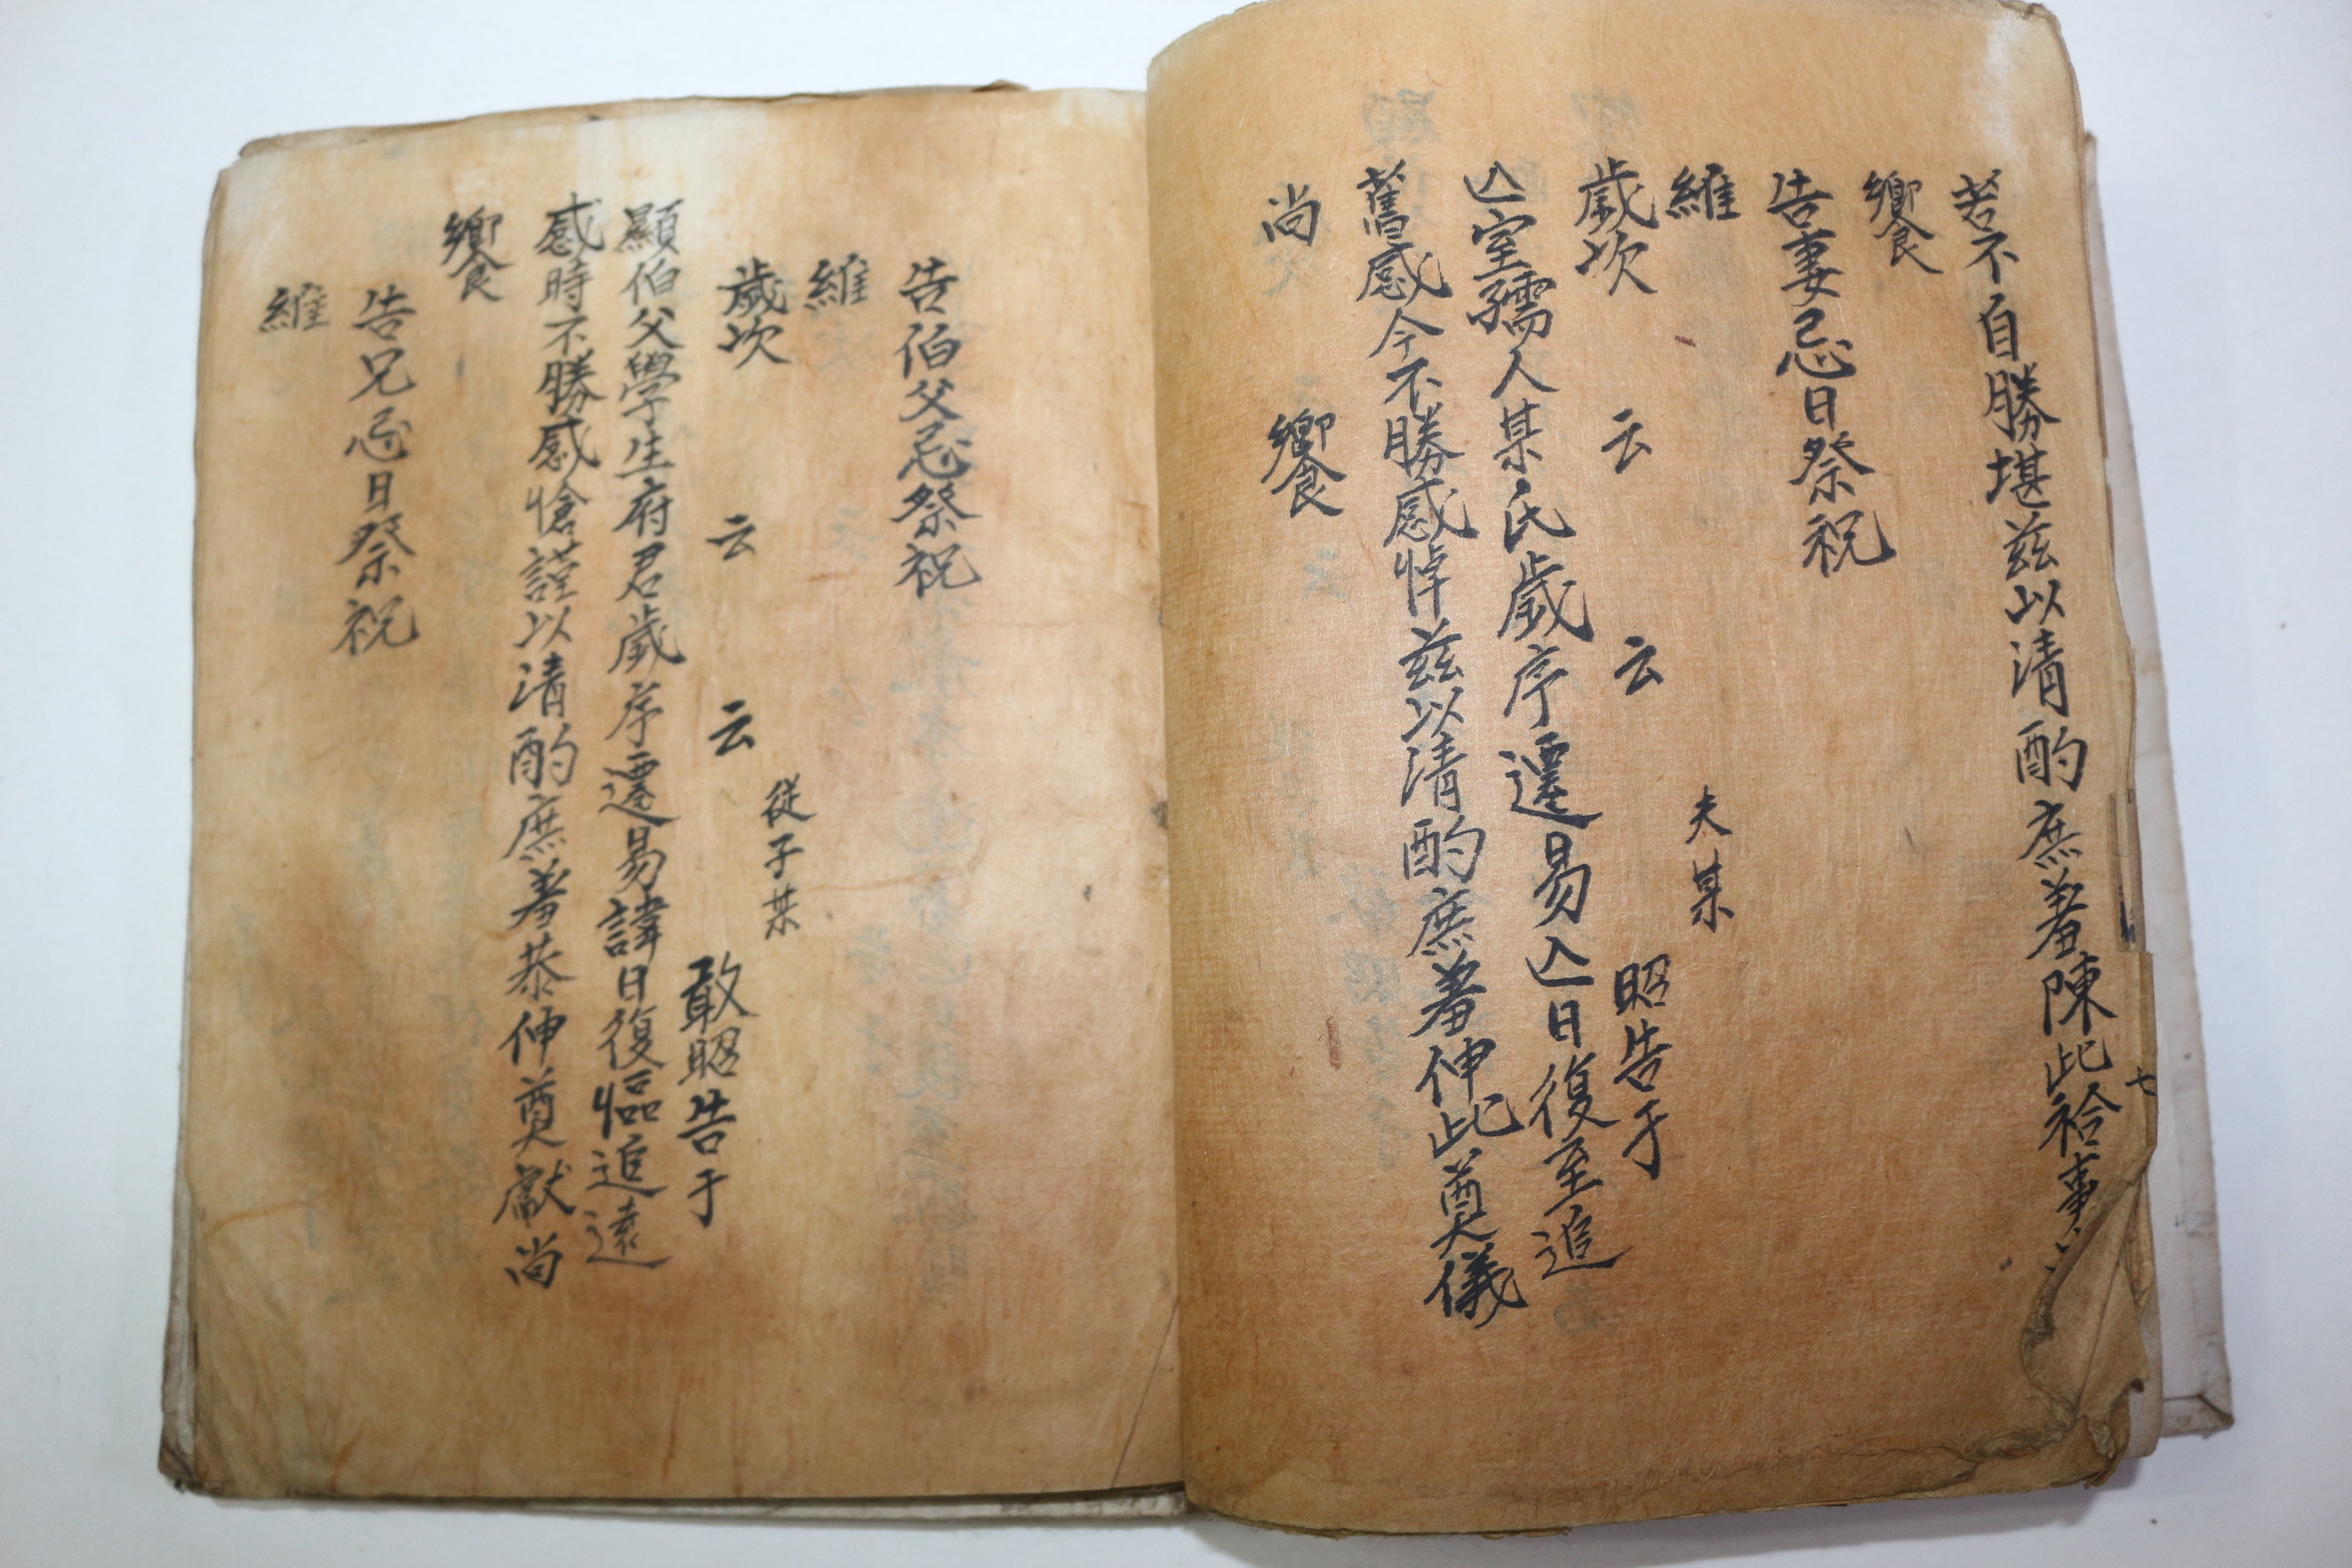 若不自勝堪茲以淸酌庶羞陳此祫事尙
饗
告妻忌日祭祝
維
歲次 云 云
夫某
昭告于
亾室孺人某氏歲序遷易亾日復至追
舊感今不勝感悼茲以淸酌庶羞伸此奠儀
尙 饗
告伯父忌祭祝
維
歲次 云 云
從子某
敢昭告于
顯伯父學生府君歲序遷易諱日復臨追遠
感時不勝感愴謹以淸酌庶羞恭伸奠獻尙
饗
告兄忌日祭祝
維